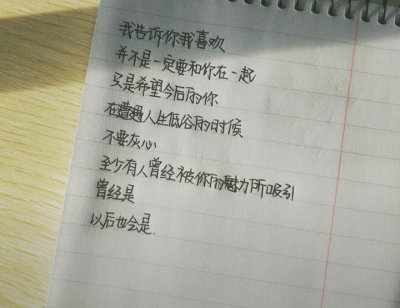 我告诉你我喜欢
并不是一定要和你在一起
只是希望今后的你
在遭遇人生低谷的时候
不要灰心
至少有人曾经被你的魅力所吸引
曾经是
以后也会是.